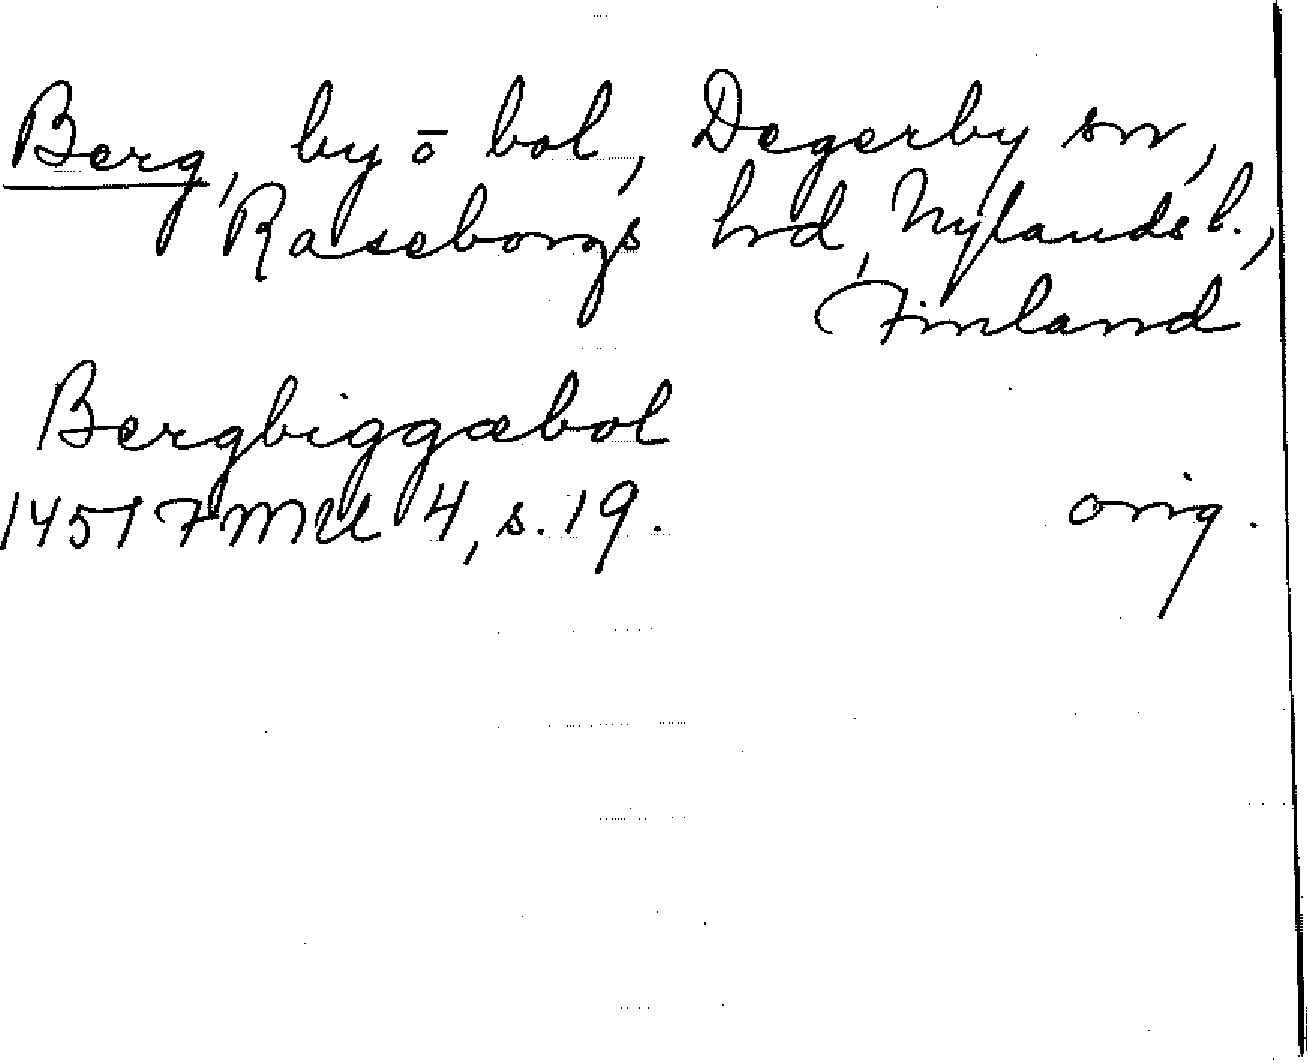 Berg, by o̅ bol, Degerby sn,
Raseborgs hrd, Nylands l.,
Finland
Bergbiggæbol
1451 FMU 4, s. 19. orig.